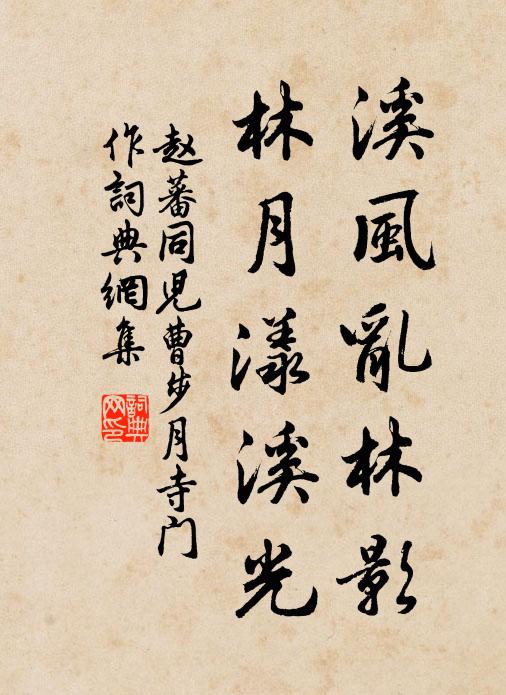 溪風亂林影
林月漾溪光
赵蕃同児曹步月寺门
作詞典網集
詞典網印